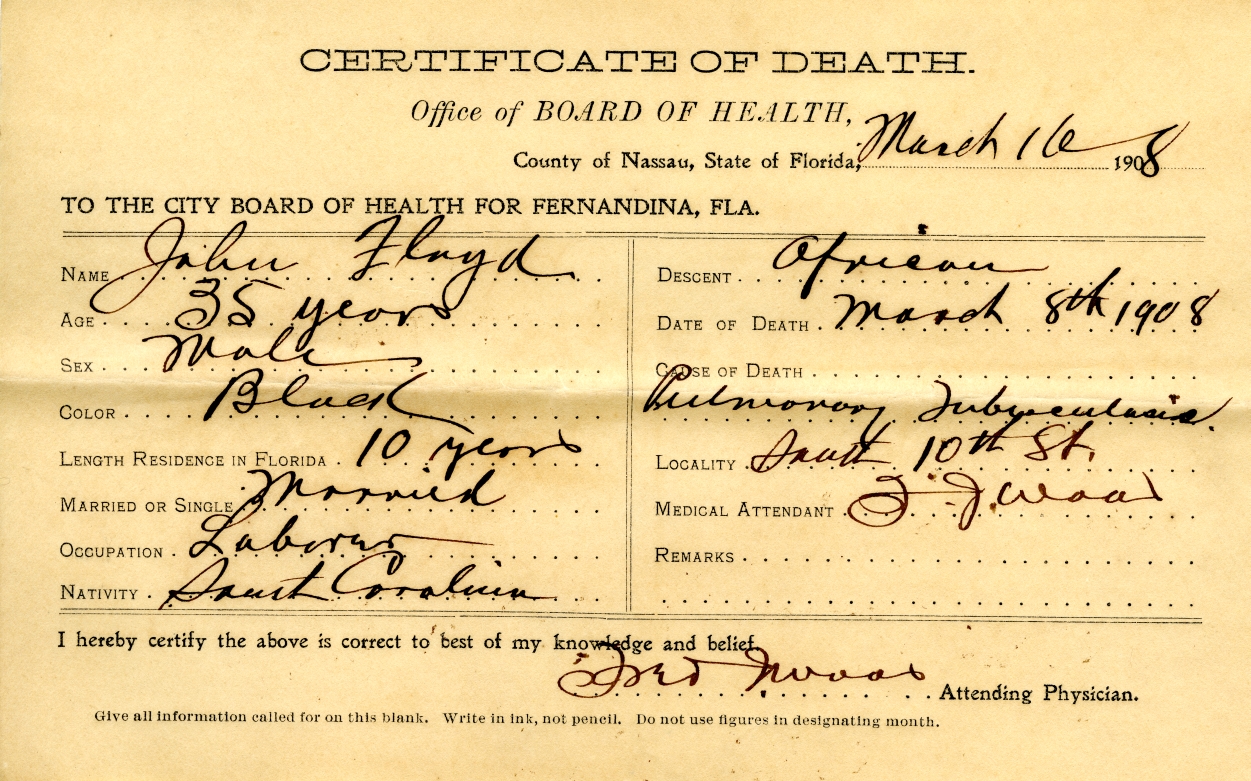 CERTIFICATE OF DEATH.
Office of BOARD OF HEALTH,
County of Nassau, State of Florida, March 16 1908
TO THE CITY BOARD OF HEALTH FOR FERNANDINA, FLA.
NAME John Floyd
AGE 35 years
SEX Male
COLOR Black
LENGTH RESIDENCE IN FLORIDA 10 years
MARRIED OR SINGLE Married
OCCUPATION Laborer
NATIVITY South Carolina
DESCENT African
DATE OF DEATH March 8th 1908
CAUSE OF DEATH
Pulmonary Tuberculosis.
LOCALITY South 10th St.
MEDICAL ATTENDANT F. J. Wood
REMARKS
I hereby certify the above is correct to best of my knowledge and belief.
Fred J Wood Attending Physician.
Give all information called for on this blank. Write in ink, not pencil. Do not use figures in designating month.